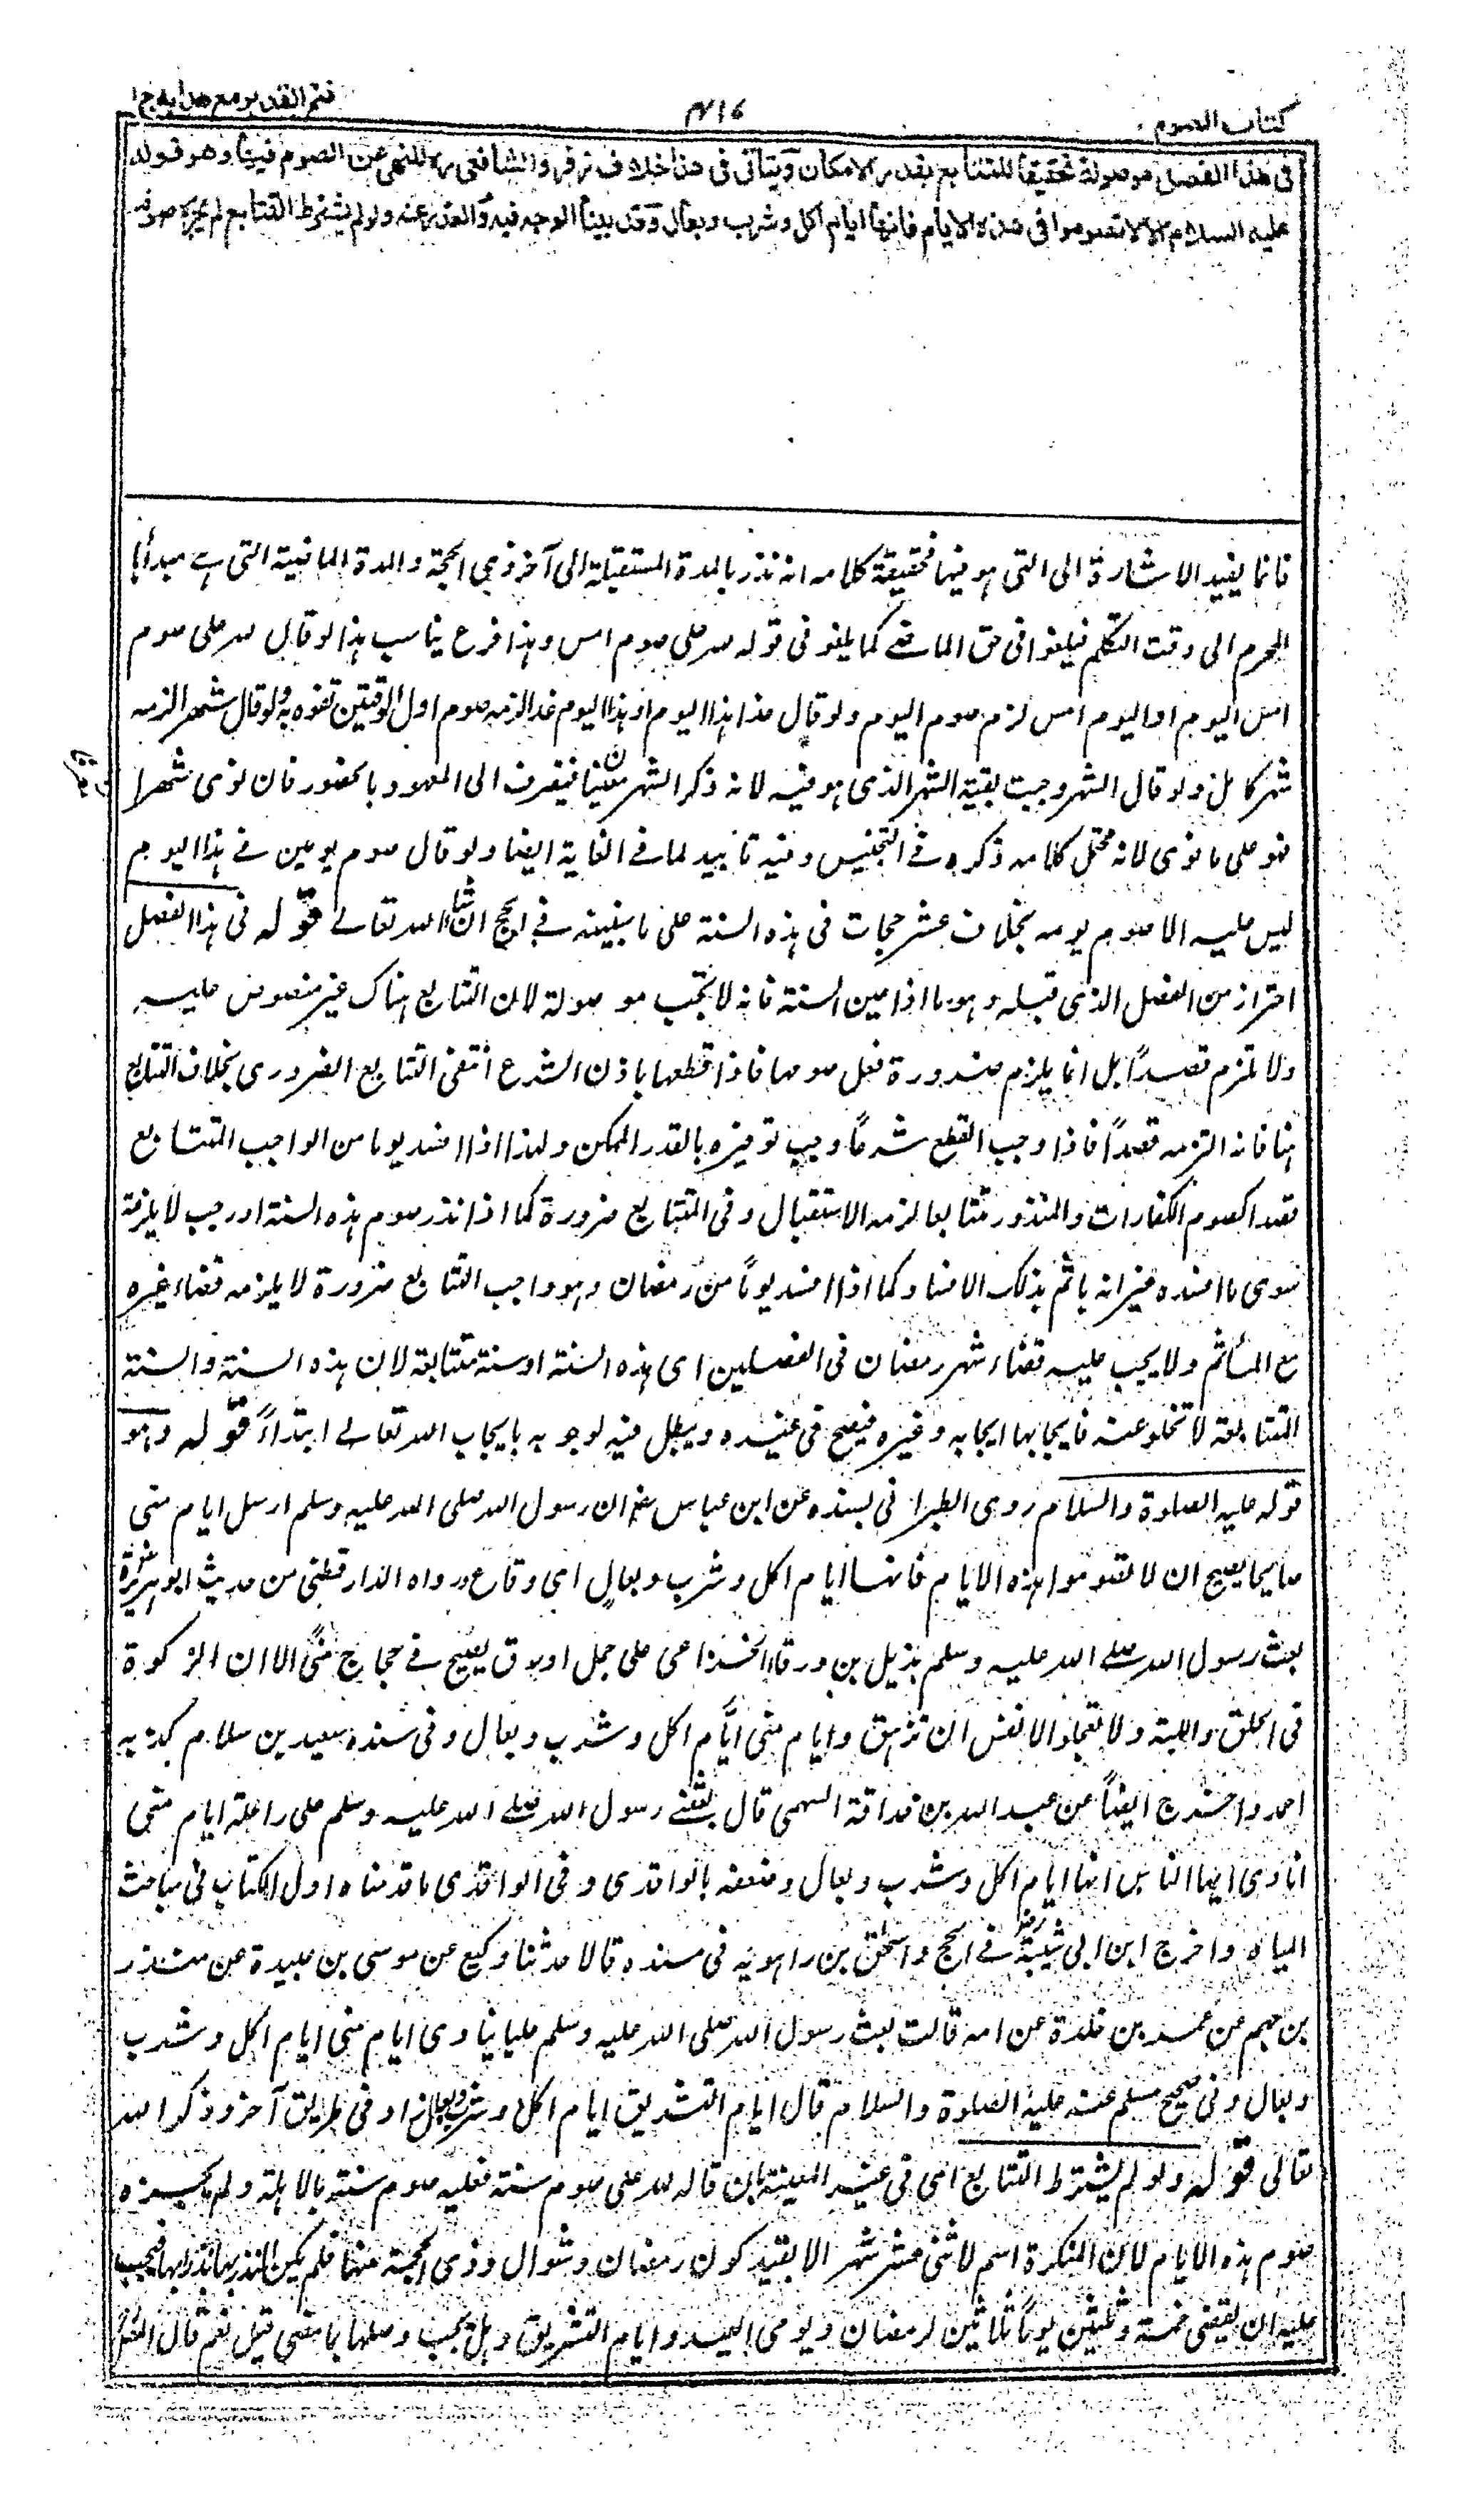 كتاب الصوم
۴۱۶
فتح القدير مع هدايه ج۱
في هذا الفصل موصولة تحقيقا للتتابع بقدر الامكان ويتأتى في هذا خلاف زفر والشافعي رح للنهي عن الصوم فيها وهو قوله
عليه السلام الا لا تصوموا في هذه الايام فانها ايام اكل وشرب وبعال وقد بينا الوجه فيه والعذر عنه ولو لم يشترط التتابع لم يجزه صوم
فانما يفيد الاشارة الى التى هو فيها فحقيقة كلامه انه نذر بالمدة المستقبلة الى آخر ذي الحجة والمدة الماضية التى هي مبدأها
المحرم الى وقت التكلم فيلغو في حق الماضي كما يلغو في قوله لله على صوم امس وهذا فرع يناسب هذا لو قال لله على صوم
امس اليوم او اليوم امس لزم صوم اليوم ولو قال غدا هذا اليوم او هذا اليوم غدا لزمه صوم اول الوقتين تفوه به ولو قال شهر الزمه
شهر كامل ولو قال الشهر وجبت بقية الشهر الذى هو فيه لانه ذكر الشهر معينا فينصرف الى المعهود بالحضور فان نوى شهرا
فهو على ما نوى لانه محتمل كلامه ذكره في التجنيس وفيه تاييد لما في الغاية ايضا ولو قال صوم يومين في هذا اليوم
ليس عليه الا صوم يومه بخلاف عشر حجات في هذه السنة على ما سنبينه في الحج ان شاء الله تعالى قوله في هذا الفصل
احتراز من الفصل الذى قبله وهو ما اذا عين السنة فانه لا تجب موصولة لان التتابع هناك غير منصوص عليه
ولا ملتزم قصداً بل انما يلزم ضرورة فعل صومها فاذا قطعها باذن الشرع انتفى التتابع الضرورى بخلاف التتابع
هنا فانه التزمه قصداً فاذا وجب القطع شرعاً وجب توفيره بالقدر الممكن ولهذا اذا افسد يوما من الواجب المتتابع
قصدا كصوم الكفارات والمنذور متتابعا لزمه الاستقبال وفى المتتابع ضرورة كما اذا نذر صوم هذه السنة او رجب لا يلزمه
سوى ما افسده غير انه ياثم بذلك الافساد كما اذا افسد يوماً من رمضان وهو واجب التتابع ضرورة لا يلزمه قضاء غيره
مع المأثم ولا يجب عليه قضاء شهر رمضان فى الفصلين اى هذه السنة او سنة متتابعة لان هذه السنة والسنة
المتتابعة لا تخلو عنه فايجابها ايجابه وغيره فيصح فى غيره ويبطل فيه لوجوبه بايجاب الله تعالى ابتداءً قوله وهو
قوله عليه الصلوة والسلام روى الطبرانى بسنده عن ابن عباس رض ان رسول الله صلى الله عليه وسلم ارسل ايام منى
صايحا يصيح ان لا تصوموا هذه الايام فانها ايام اكل وشرب وبعال اى وقاع ورواه الدارقطنى من حديث ابو هريرة
بعث رسول الله صلى الله عليه وسلم بديل بن ورقاء الخزاعى على جمل اورق يصيح في فجاج منى الا ان الزكوة
فى الحلق واللبة ولا تعجلوا الانفس ان تزهق وايام منى ايام اكل وشرب وبعال وفى سنده سعيد بن سلام كذبه
احمد واخرج ايضاً عن عبد الله بن حذافة السهمى قال بعثنى رسول الله صلى الله عليه وسلم على راحلة ايام منى
انادى ايها الناس انها ايام اكل وشرب وبعال وضعفه بالواقدى وفى الواقدى ما قدمناه اول الكتاب فى مباحث
المياه واخرج ابن ابى شيبة في الحج واسحق بن راهويه فى مسنده قالا حدثنا وكيع عن موسى بن عبيدة عن منذر
بن جهم عن عمر بن خلدة عن امه قالت بعث رسول الله صلى الله عليه وسلم عليا ينادى ايام منى ايام اكل وشرب
وبعال وفى صحيح مسلم عنه عليه الصلوة والسلام قال ايام التشريق ايام اكل وشرب وبعال زاد فى طريق آخر وذكر الله
تعالى قوله ولو لم يشترط التتابع اى فى غير المعينة بان قال لله على صوم سنة فعليه صوم سنة بالاهلة ولم يجزه
صوم هذه الايام لان المنكرة اسم لاثنى عشر شهر الا بقيد كون رمضان وشوال وذى الحجة منها فلم يكن النذر بها نذرا بها فيجب
عليه ان يقضى خمسة وثلثين يوماً ثلاثين لرمضان ويومى العيد وايام التشريق وهل يجب وصلها بما مضى قيل نعم قال المص